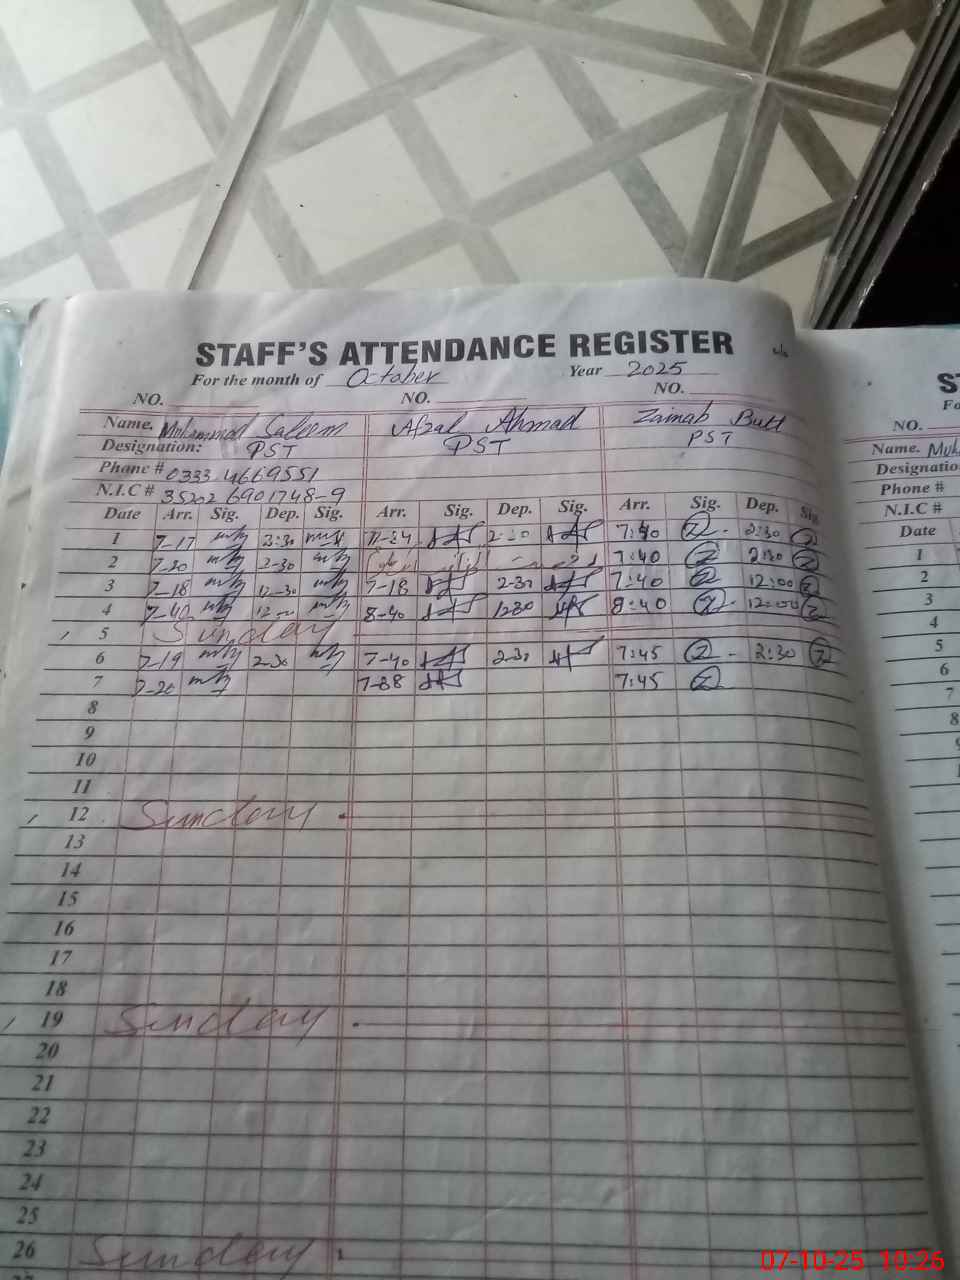 STAFF'S ATTENDANCE REGISTER
For the month of October Year 2025
NO. NO. NO.
Name. Muhammad Saleem Afzal Ahmad Zainab Butt
Designation: PST PST PST
Phone # 0333 4669551
N.I.C # 35202 6901748-9
Date Arr. Sig. Dep. Sig. Arr. Sig. Dep. Sig. Arr. Sig. Dep. Sig.
1 7-17 2:30 2:30 7:40 2:30
2 7-20 2-30 7:40 2:30
3 7-18 12-30 7-18 2-30 7:40 12:00
4 7-40 12 8-40 1230 8:40 12:00
5 Sunday
6 7-19 2-30 7-40 2-30 7:45 2:30
7 7-20 7-38 7:45
8
9
10
11
12 Sunday
13
14
15
16
17
18
19 Sunday
20
21
22
23
24
25
26 Sunday
ST
Fo
NO.
Name. Muh
Designatio
Phone #
N.I.C #
Date
1
2
3
4
5
6
7
8
07-10-25 10:26